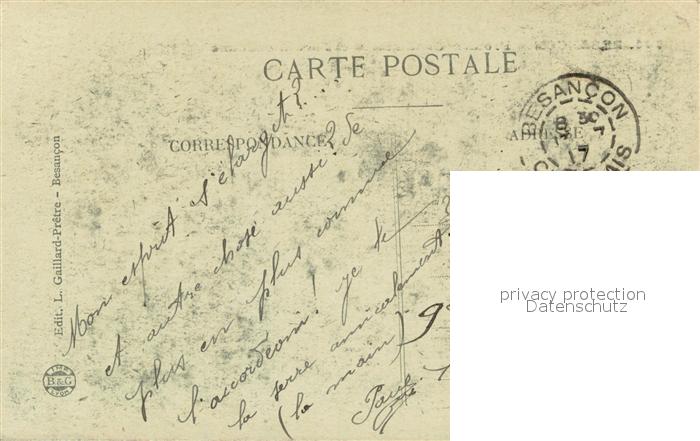 CARTE POSTALE
CORRESPONDANCE
ADRESSE
BESANÇON
8 30
7
17
Edit. L. Gaillard-Prêtre - Besançon
IMP.
B&G
LYON
Mon esprit s'élargit?...
et autre chose aussi? de
plus en plus comme
l'accordéon! je te
la serre amicalement.
(la main)
privacy protection
Datenschutz